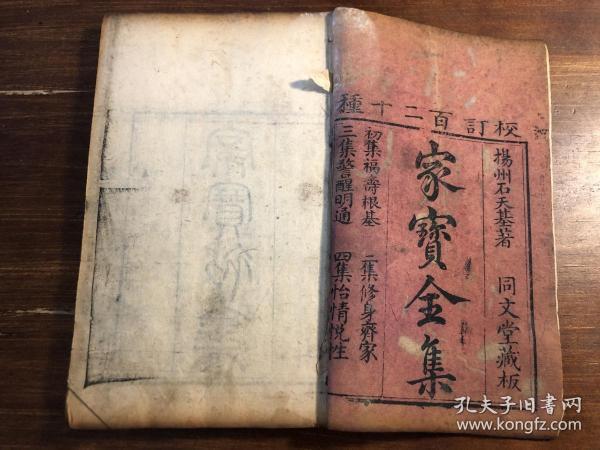 校訂百二十種
揚州石天基著
同文堂藏板
家寶全集
初集福壽根基
二集修身齊家
三集警醒明通
四集怡情悅生
孔夫子旧书网
www.kongfz.com